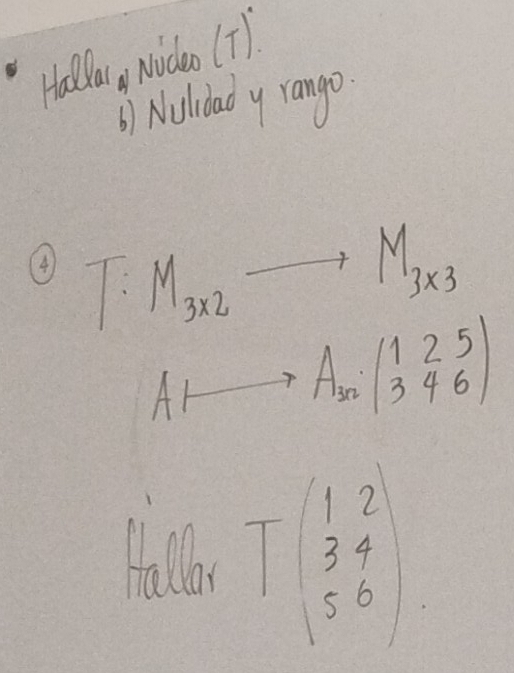 • Hallar a) Núcleo (T).
b) Nulidad y rango.
④ T: M₃ₓ₂ ⟶ M₃ₓ₃
A ⟼ A₃ₓ₂ · (1 2 5
3 4 6)
Hallar T (1 2
3 4
5 6).